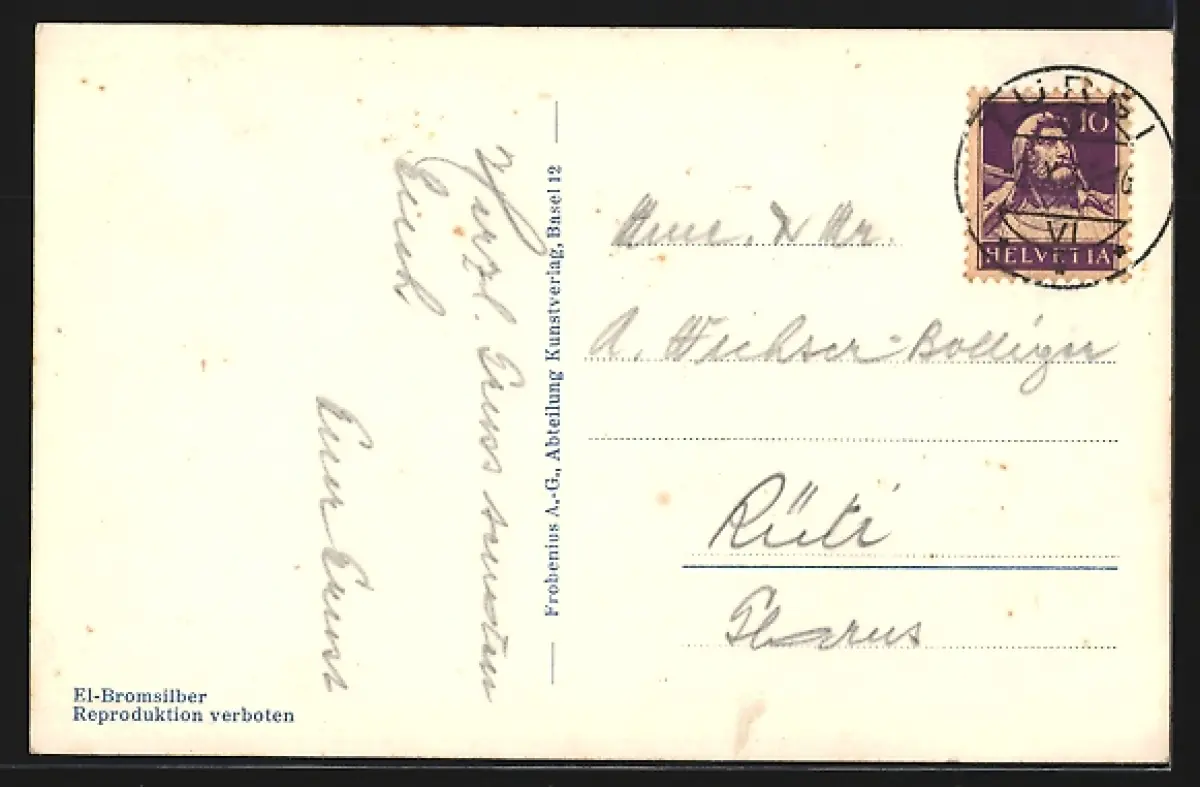 Herzl. Gruss senden
Euch
Euer Ernst
El-Bromsilber
Reproduktion verboten
Frobenius A.-G., Abteilung Kunstverlag, Basel 12
10
HELVETIA
TURGI
VI
Mr.
A. Weichser-Bolliger
Rüti
Glarus